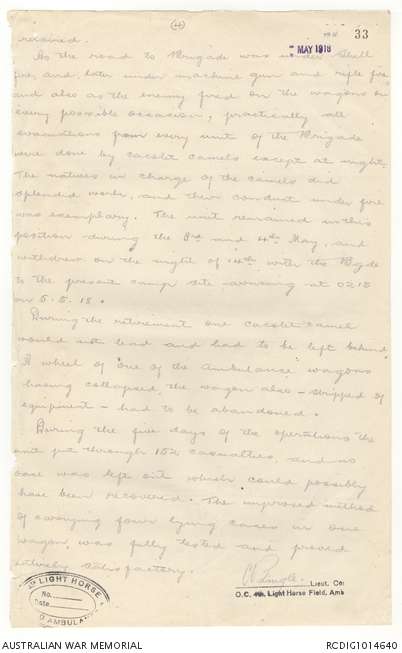 (4)
33
MAY 1918
received.
As the road to Brigade was under shell
fire, and later under machine gun and rifle fire
and also as the enemy fired on the wagons on
every possible occasion, practically all
evacuations from every unit of the Brigade
were done by cacolet camels except at night.
The natives in charge of the camels did
splendid work, and their conduct under fire
was exemplary. The unit remained in this
position during the 3rd and 4th May, and
withdrew on the night of 4th with the Bgde
to the present camp site arriving at 0215
on 5.5.18.
During the retirement one cacolet camel
would not lead and had to be left behind.
A wheel of one of the ambulance wagons
having collapsed, the wagon also - stripped of
equipment - had to be abandoned.
During the five days of the operations the
unit put through 152 casualties, and no
case was left out which could possibly
have been recovered. The improved method
of carrying four lying cases in one
wagon, was fully tested and proved
entirely satisfactory.
Lieut. Co
O.C. 4th. Light Horse Field. Amb
LIGHT HORSE
No.
Date
D AMBULA
AUSTRALIAN WAR MEMORIAL
RCDIG1014640